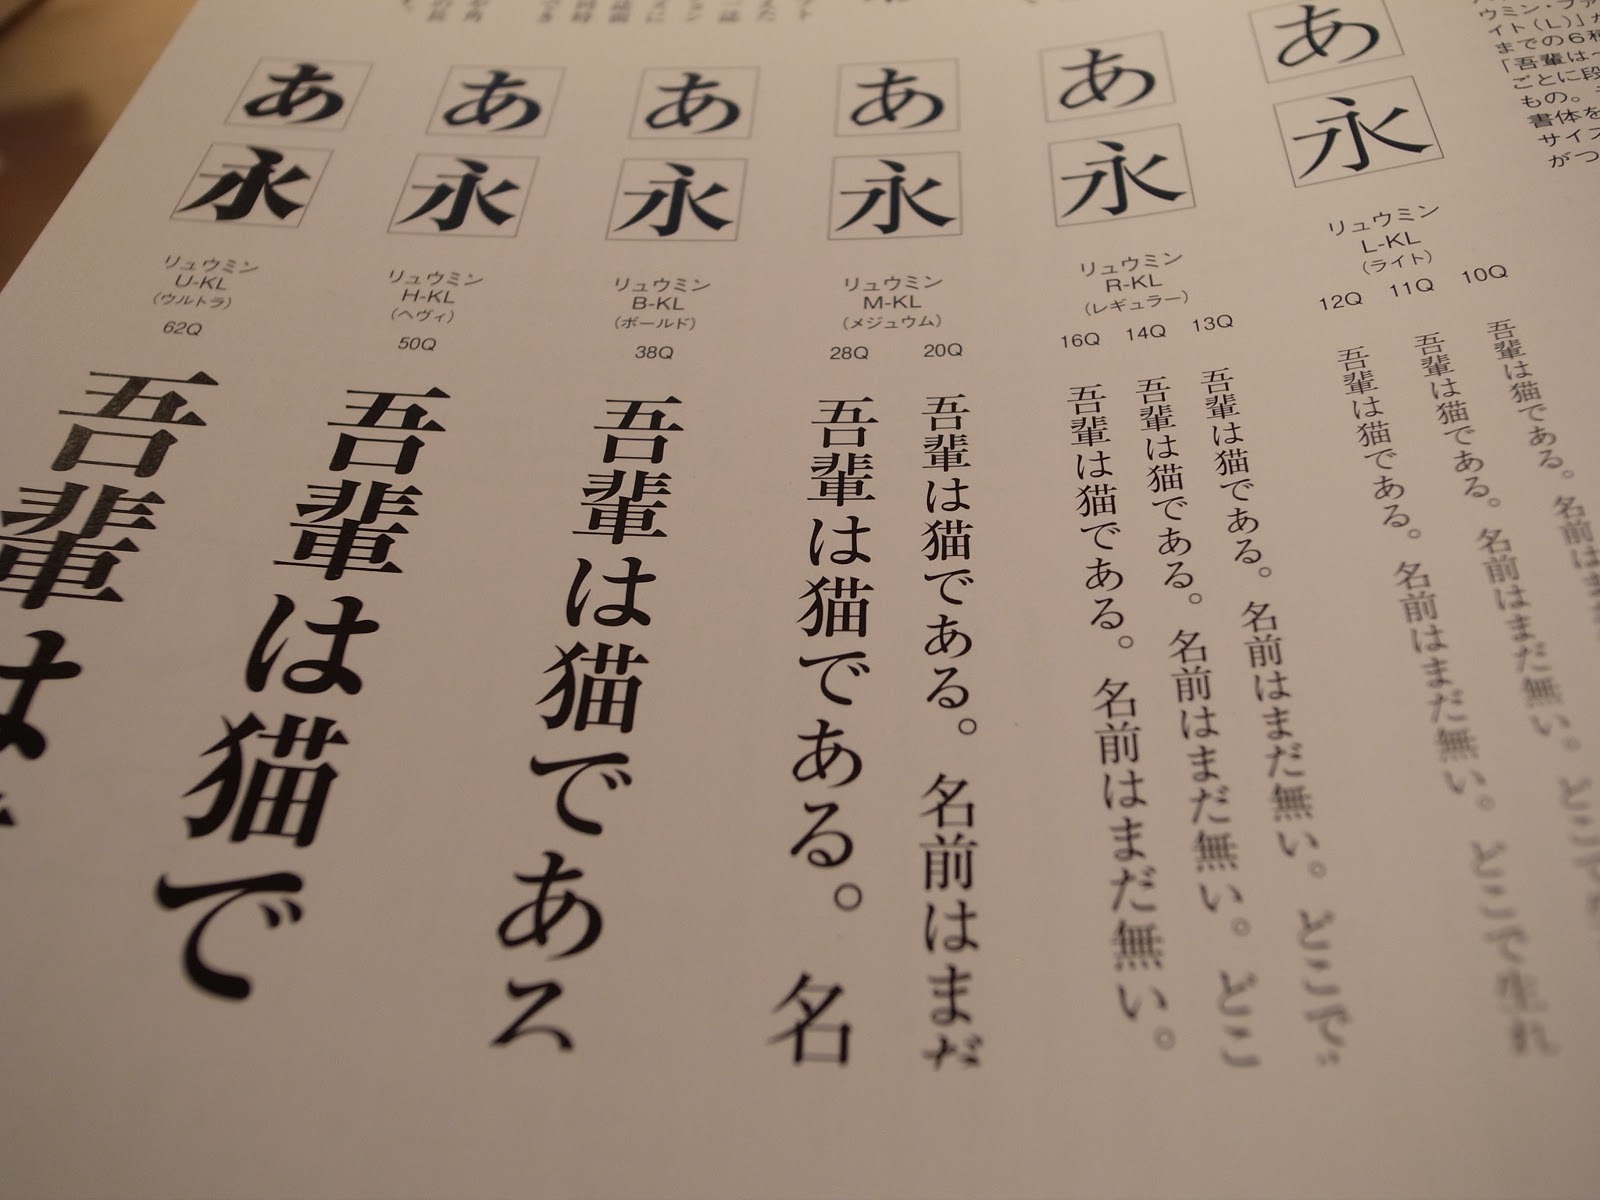 あ
永
リュウミン
U-KL
（ウルトラ）
62Q
吾輩は
あ
永
リュウミン
H-KL
（ヘヴィ）
50Q
吾輩は猫で
あ
永
リュウミン
B-KL
（ボールド）
38Q
吾輩は猫である
あ
永
リュウミン
M-KL
（メジュウム）
28Q
吾輩は猫である。名
20Q
吾輩は猫である。名前はまだ
あ
永
リュウミン
R-KL
（レギュラー）
16Q
吾輩は猫である。名前はまだ無い。
14Q
吾輩は猫である。名前はまだ無い。どこ
13Q
吾輩は猫である。名前はまだ無い。どこで
あ
永
リュウミン
L-KL
（ライト）
12Q
吾輩は猫である。名前はまだ無い。どこで生れ
11Q
吾輩は猫である。名前はまだ無い。どこで
10Q
吾輩は猫である。名前は
ウミン・ファ
イト（L）」
までの6種
「吾輩は
ごとに段
もの。
書体を
サイズ
がつ